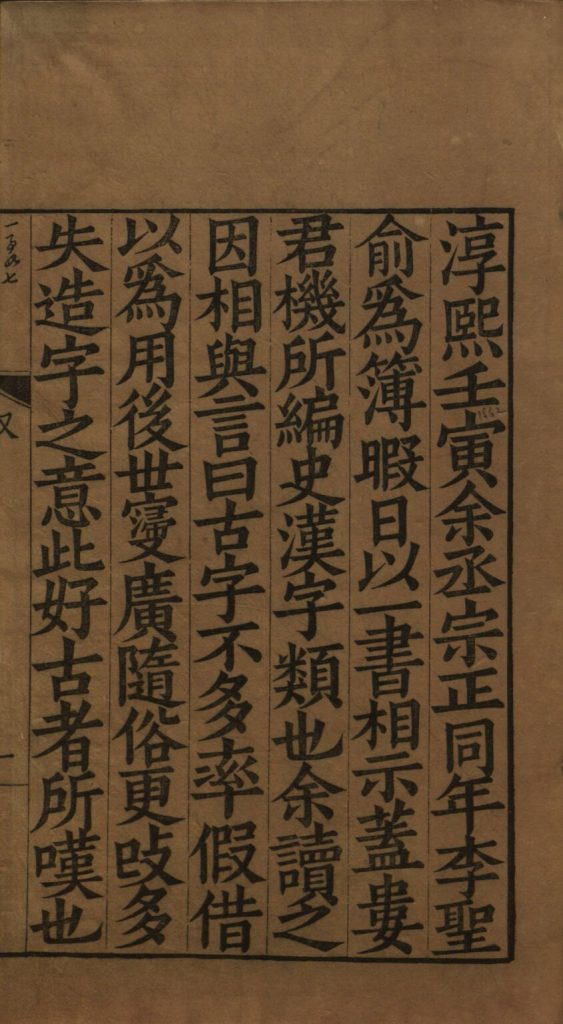 淳熙壬寅余丞宗正同年李聖
俞為簿暇日以一書相示蓋婁
君機所編史漢字類也余讀之
因相與言曰古字不多率假借
以為用後世寖廣隨俗更改多
失造字之意此好古者所嘆也